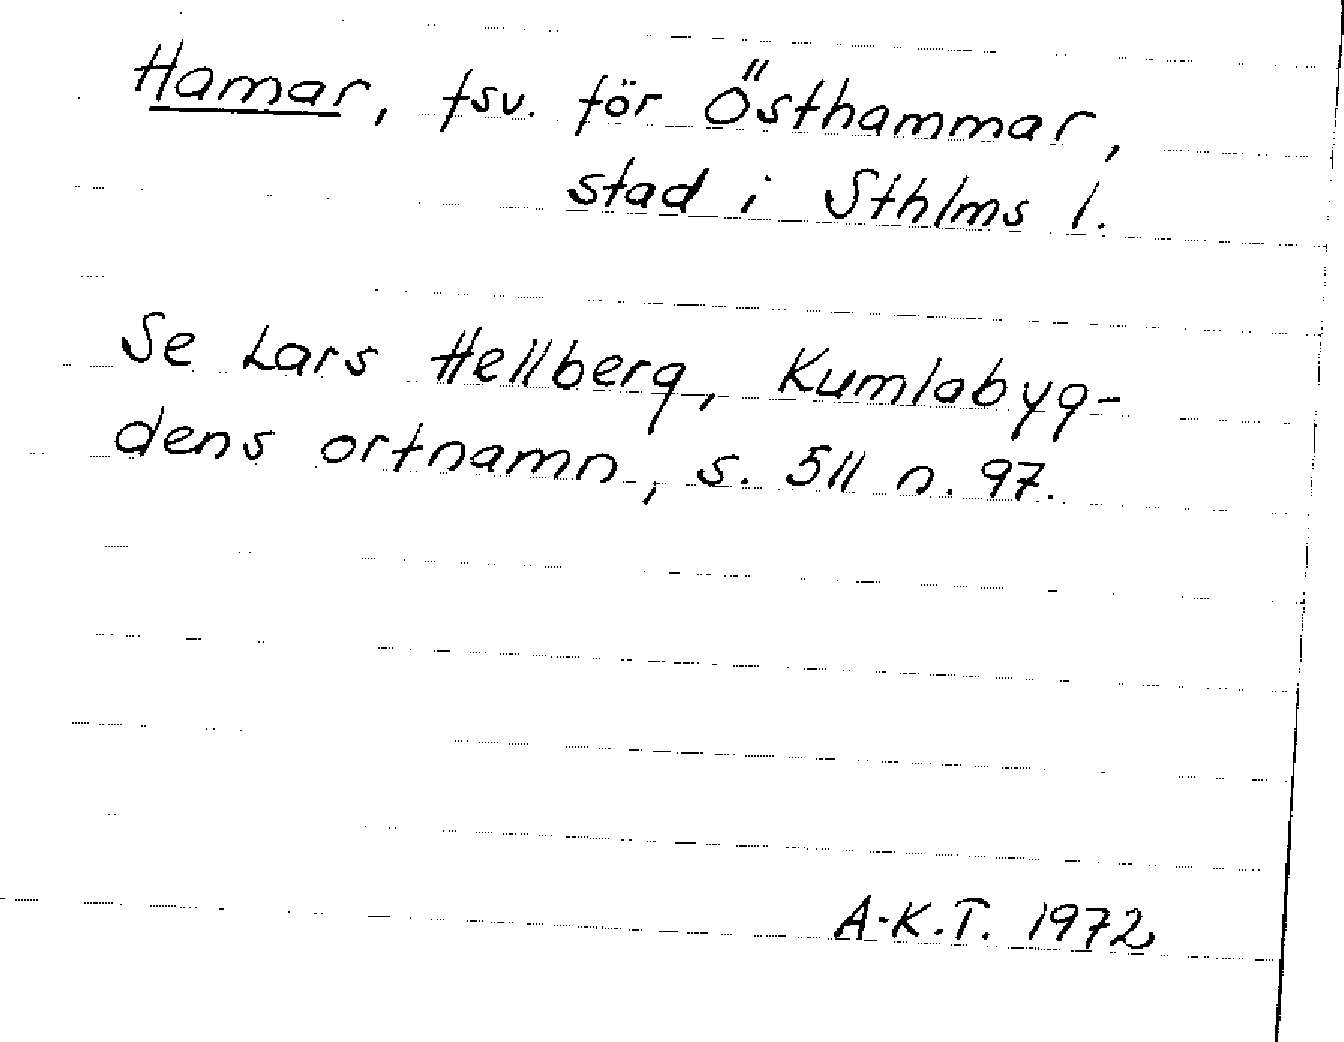 Hamar, fsv. för Östhammar,
stad i Sthlms l.
Se Lars Hellberg, Kumlabyg-
dens ortnamn, s. 511 n. 97.
A-K.T. 1972